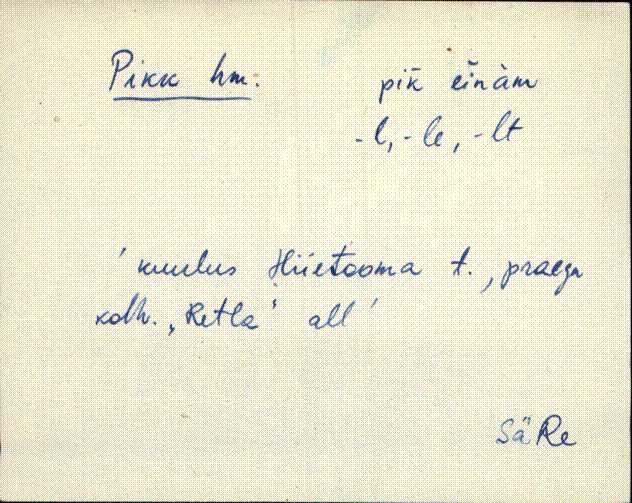 Pikk hm. pik̄ eīnàm
-l, -le, -lt
' kuulus Hiietooma t., praegu
kolh. „Retla" all '
SäRe